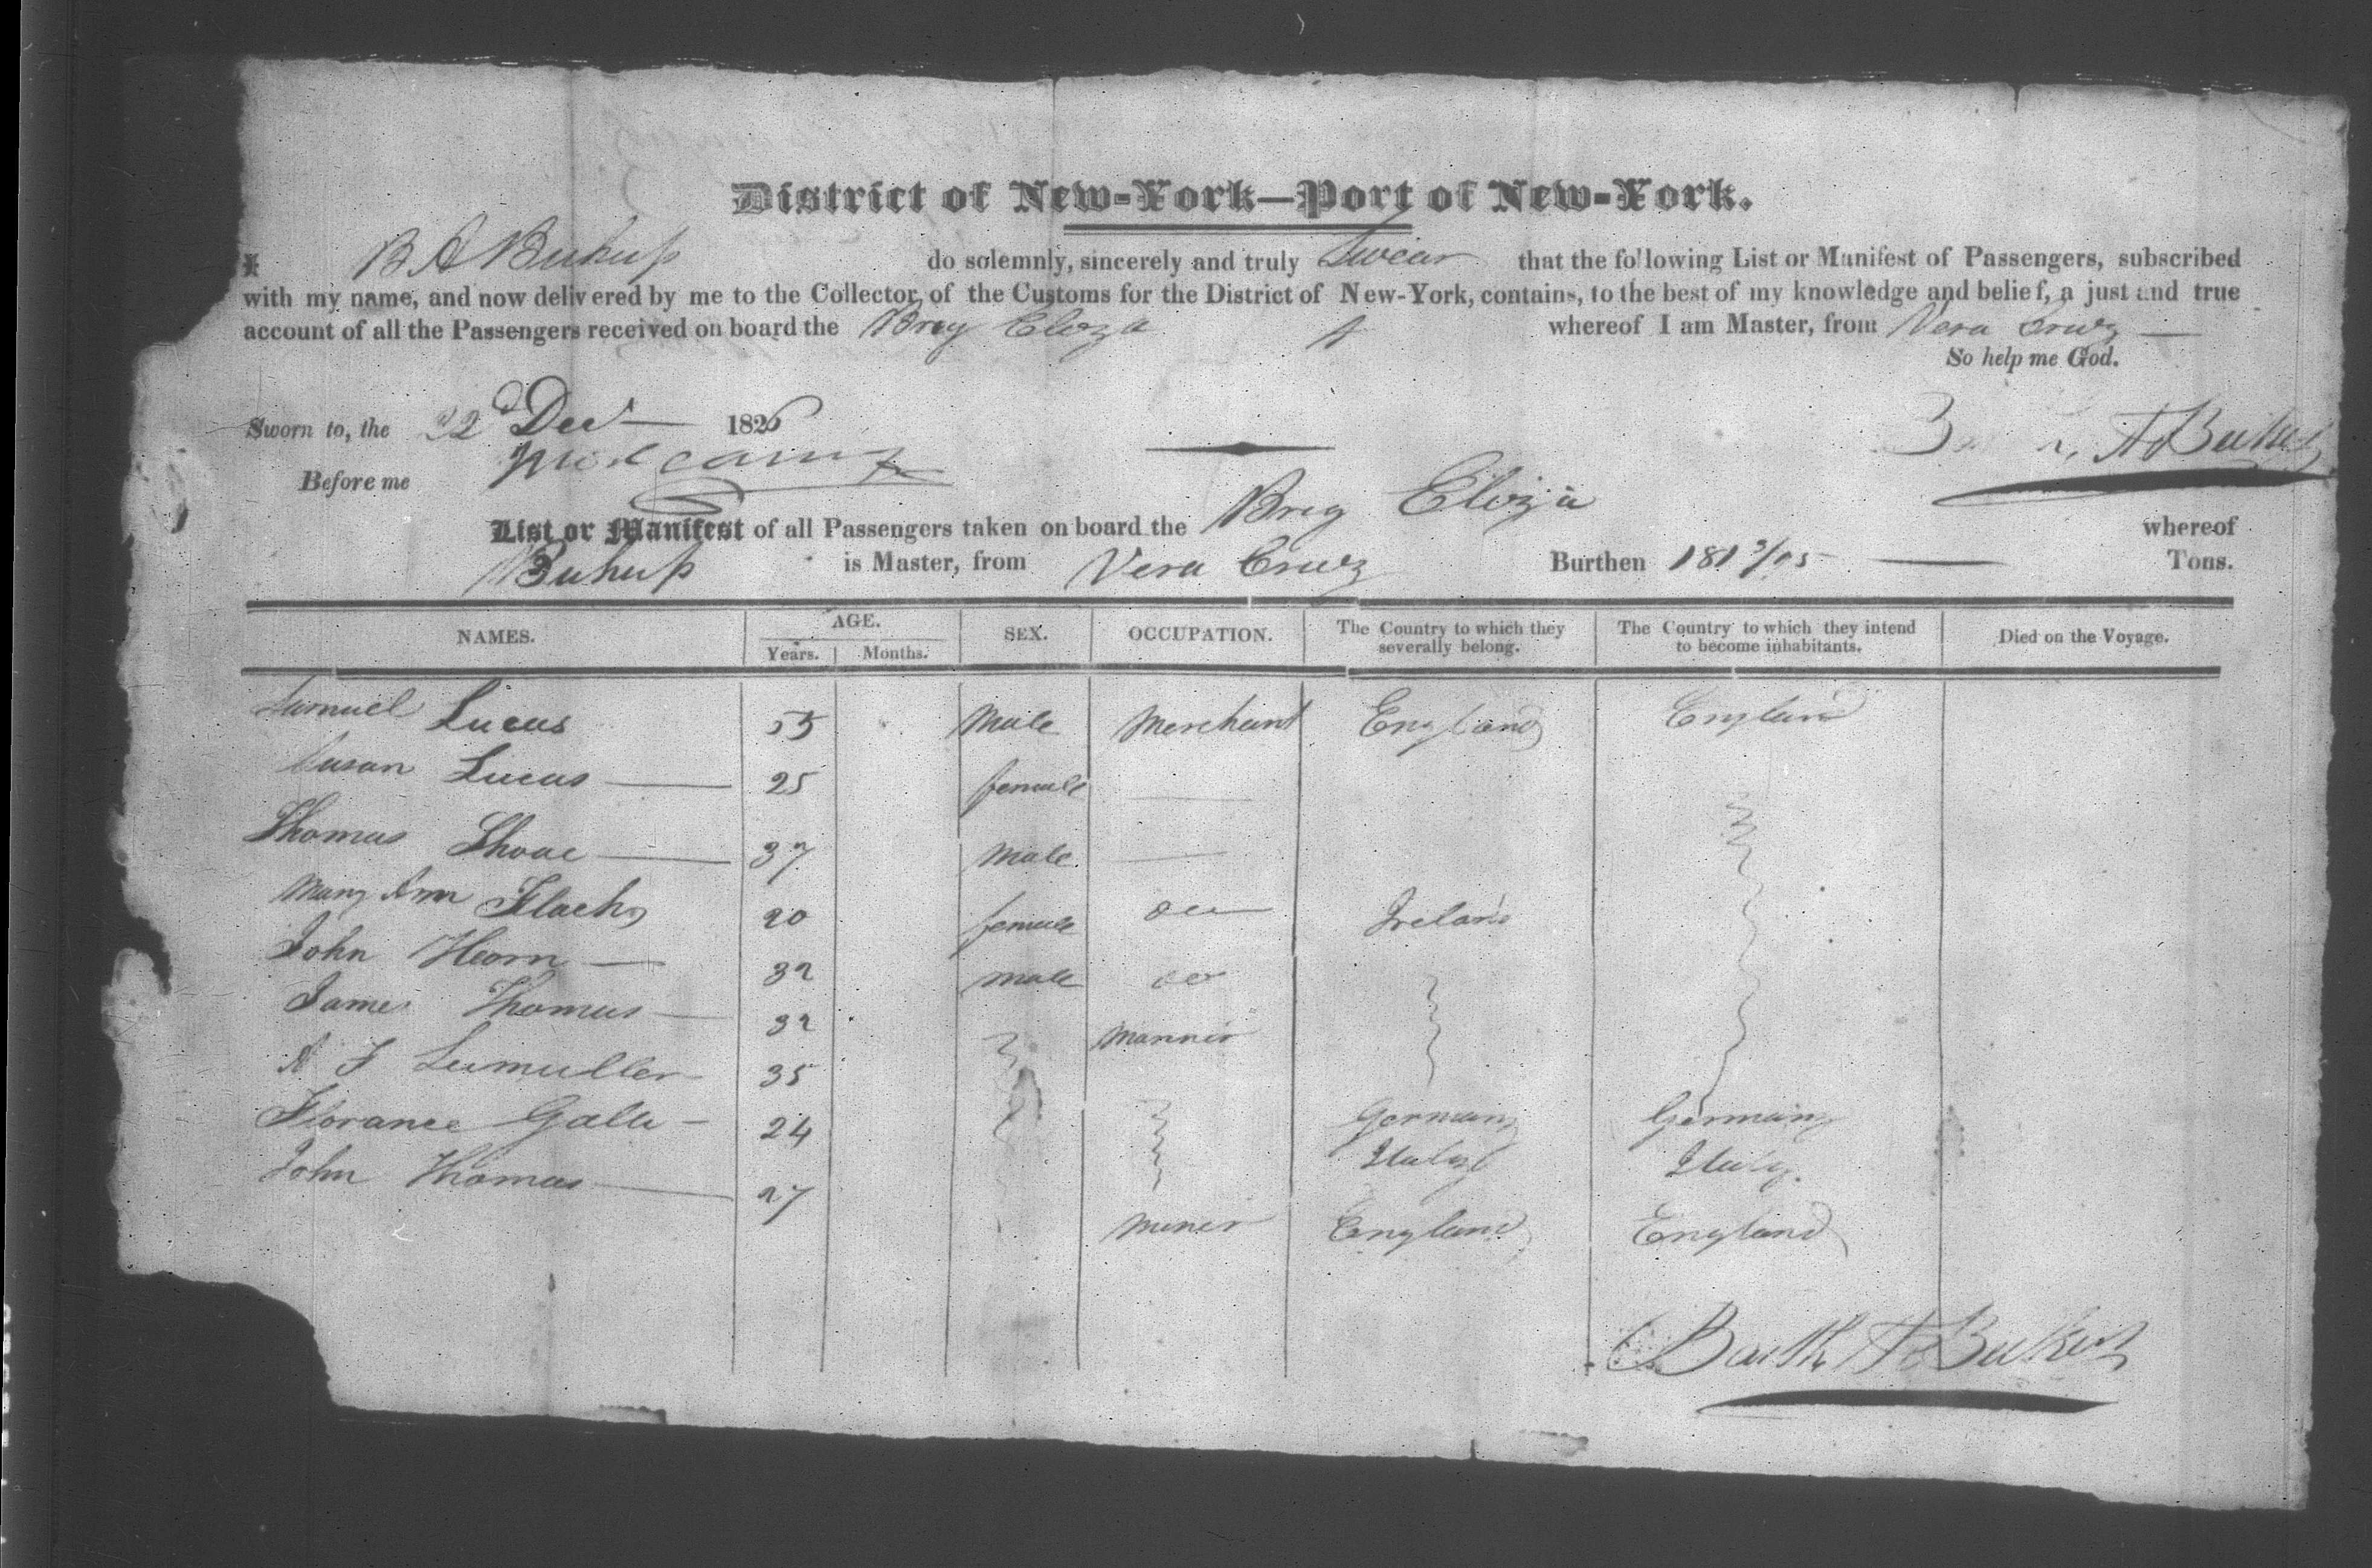 District of New-York—Port of New-York.
I B A do solemnly, sincerely and truly Swear that the following List or Manifest of Passengers, subscribed
with my name, and now delivered by me to the Collector, of the Customs for the District of New-York, contains, to the best of my knowledge and belief, a just and true
account of all the Passengers received on board the Brig Eloza whereof I am Master, from Vera Cruz —
So help me God.
Sworn to, the 22d Decr — 1826
Before me
List or Manifest of all Passengers taken on board the Brig Eloza whereof
is Master, from Vera Cruz Burthen 181 Tons.
NAMES. AGE. SEX. OCCUPATION. The Country to which they severally belong. The Country to which they intend to become inhabitants. Died on the Voyage.
Years. Months.
Samuel Lucas 55 Male Merchant England England
Susan Lucas 25 female
Thomas 37 Male
Mary Ann 20 female Ireland
John Hearn 32 male
James Thomas 32
A F Lumuller 35
Florance Galle 24 Germany Germany
John Thomas 27 Italy Italy
Miner England England